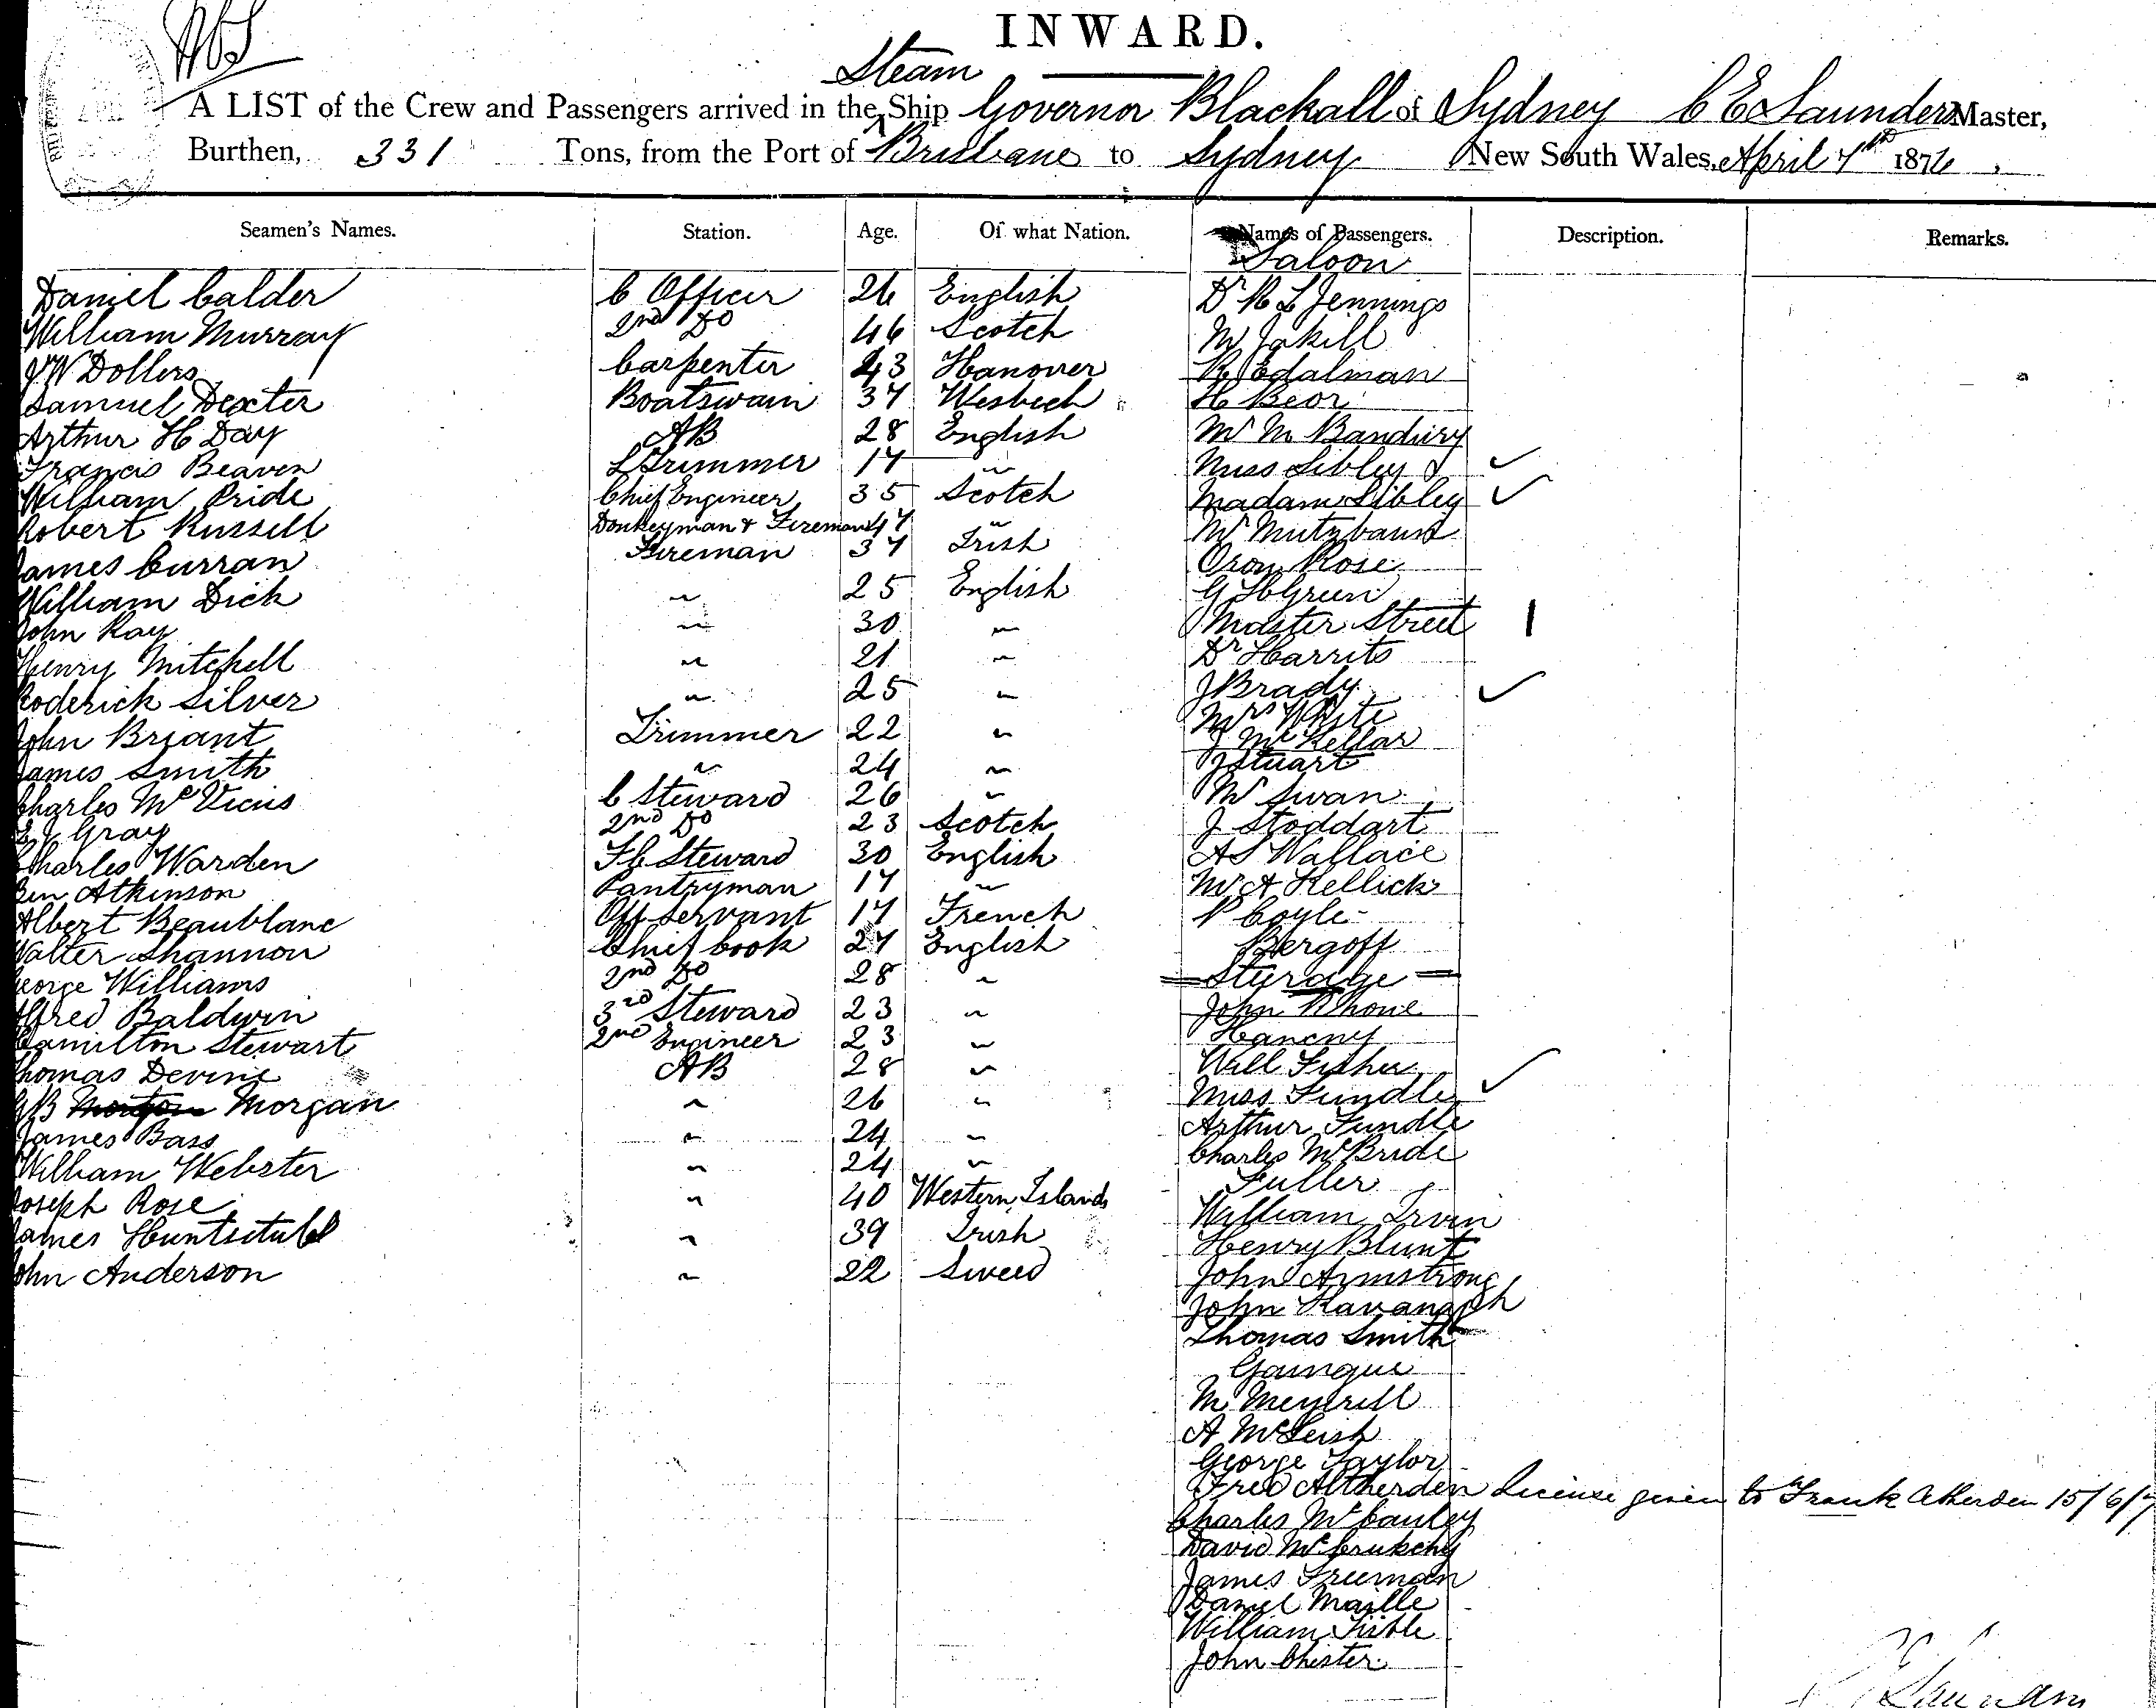 INWARD.
Steam
A LIST of the Crew and Passengers arrived in the Ship Governor Blackall of Sydney C E Saunders Master,
Burthen, 331 Tons, from the Port of Brisbane to Sydney New South Wales, April 7th 1876.
Seamen's Names. Station. Age. Of what Nation. Names of Passengers. Description. Remarks.
Saloon
Daniel Calder C Officer 26 English Dr R L Jennings
William Murray 2nd Do 46 Scotch Mr Jakill
J W Dollers Carpenter 43 Hanover R Edalman
Samuel Dexter Boatswain 37 Wesbech H Beor
Arthur H Day AB 28 English Mr M Bandury
Francis Beaven L Trimmer 17 " Miss Sibley &
William Pride Chief Engineer 35 Scotch Madam Sibley
Robert Russell Donkeyman & Fireman 47 " Mr Mutzbaund
James Curran Fireman 37 Irish Oron Rose
William Dick " 25 English G H Green
John Ray " 30 " Master Street 1
Henry Mitchell " 21 " Dr Harrits
Roderick Silver " 25 " J Brady
John Briant Trimmer 22 " Mrs White
J McKellar
James Smith " 24 " J Stuart
Charles McVicus C Steward 26 " Mr Swan
Gray 2nd Do 23 Scotch J Stoddart
Charles Warden F C Steward 30 English A S Wallace
Ben Atkinson Pantryman 17 " Mr A Kellick
Albert Beaublanc Off Servant 17 French P Coyle
Walter Shannon Chief Cook 27 English Bergoff
George Williams 2nd Do 28 " Sturage
Alfred Baldwin 3rd Steward 23 " John Rhone
Hamilton Stewart 2nd Engineer 23 " Hancny
Thomas Devine AB 28 " Will Fisher
G B Morgan " 26 " Miss Fundle
James Bass " 24 " Arthur Fundle
William Webster " 24 " Charles McBride
Fuller
Joseph Rose " 40 Western Islands William Irvin
James Huntsitubl " 39 Irish Henry Blunt
John Anderson " 22 Sweed John Armstrong
John Kavanagh
Thomas Smith
Gainque
M Meyrell
A McLeish
George Taylor
Fred Altherden License given to Frank Atherden 15/6/7
Charles McCauley
David McCrukchy
James Freeman
Daniel Maille
William Tisble
John Chester